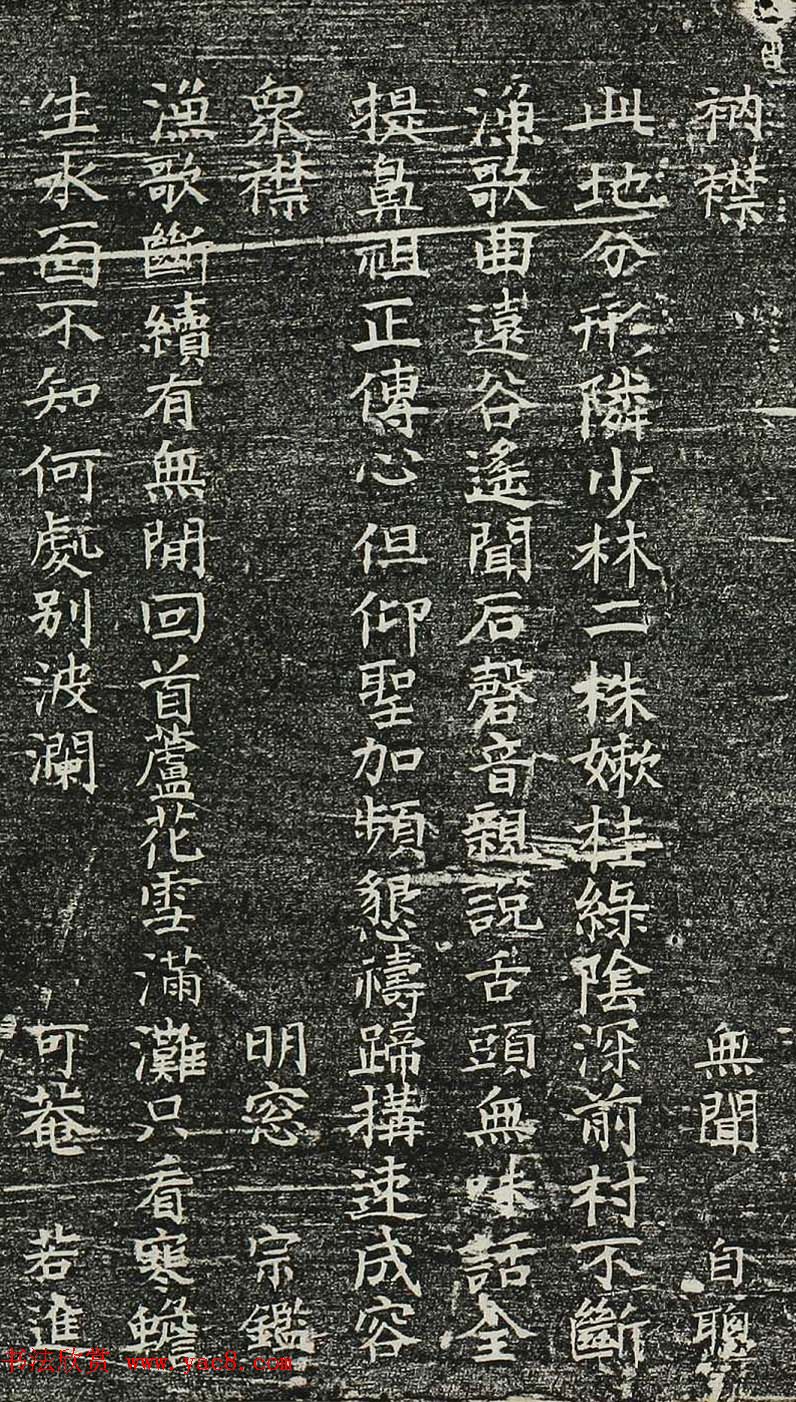 衲襟 無聞 自聰
此地分形隣少林二株嫰桂綠陰深前村不斷
漁歌曲遠谷遙聞石磬音親說舌頭無味話全
提鼻祖正傳心但仰聖加頻懇禱蹄搆速成容
衆襟 明窓 宗鑑
漁歌斷續有無閒回首蘆花雪滿灘只看寒蟾
生水面不知何處别波瀾 可菴 若進
书法欣赏 www.yac8.com